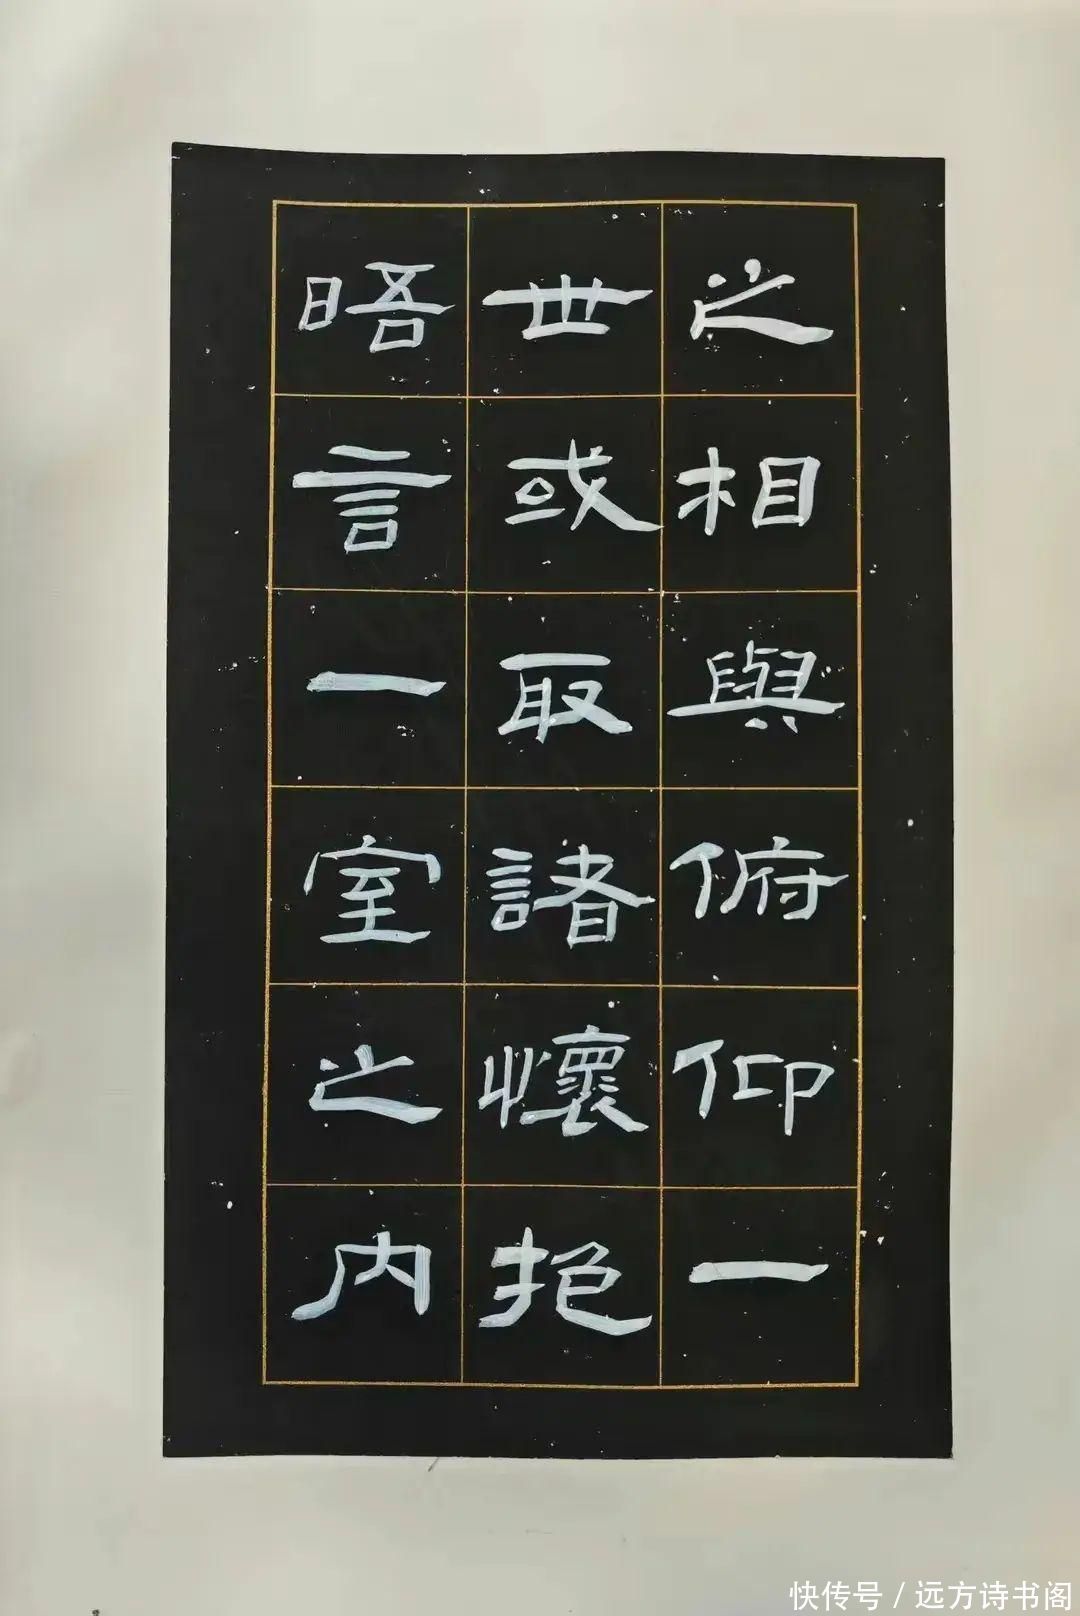 之相與俯仰一
世或取諸懷抱
晤言一室之内
快传号 / 远方诗书阁